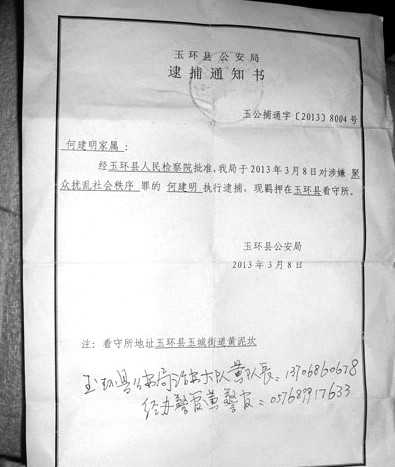 玉环县公安局
逮捕通知书
玉公捕通字〔2013〕8004号
何建明家属：
经玉环县人民检察院批准，我局于2013年3月8日对涉嫌 聚
众扰乱社会秩序 罪的 何建明 执行逮捕，现羁押在玉环县看守所。
玉环县公安局
2013年3月8日
注：看守所地址玉环县玉城街道黄泥坎
玉环县公安局治安大队黄队长：13706860678
经办警官黄警官：057689917633